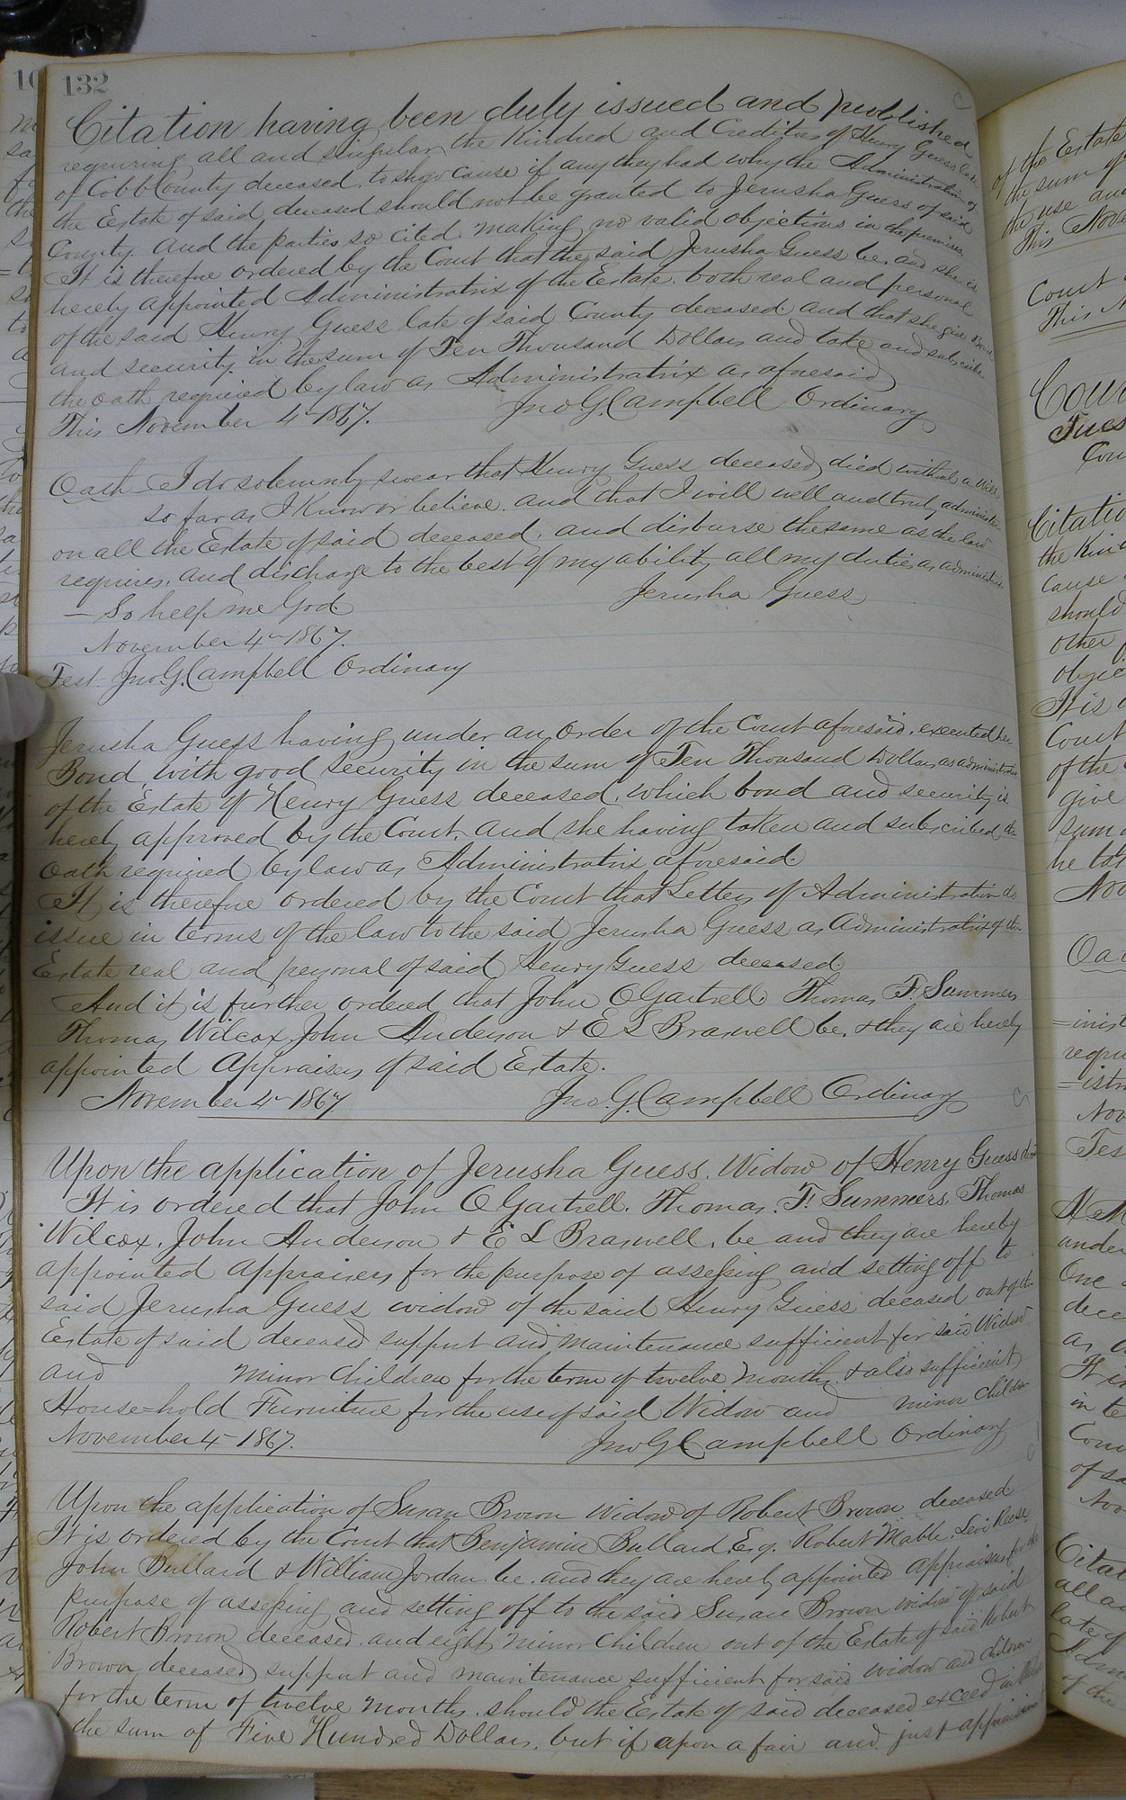 132
Citation having been duly issued and published
requiring all and singular the Kindred and Creditors of Henry Guess late
of Cobb County deceased, to show cause if any they had why the Administration of
the Estate of said deceased should not be granted to Jerusha Guess of said
County. And the parties so cited. making no valid objections in the premises.
It is therefore ordered by the Court that the said Jerusha Guess be, and she is
hereby appointed Administratrix of the Estate. both real and personal
of the said Henry Guess late of said County deceased and that she give Bond
and security in the sum of Ten Thousand Dollars and take and subscribe
the oath required by law as Administratrix as aforesaid
This November 4th 1867. Jno G. Campbell Ordinary
Oath I do solemnly swear that Henry Guess deceased, died without a Will
so far as I Know or believe. and that I will well and truly administer
on all the Estate of said deceased, and disburse the same as the law
requires, and discharge to the best of my ability all my duties as administratrix
— So help me God
Jerusha Guess
November 4th 1867.
Test Jno. G. Campbell Ordinary
Jerusha Guess having under an order of the Court aforesaid, executed her
Bond with good security in the sum of Ten Thousand Dollars as administratrix
of the Estate of Henry Guess deceased, which bond and security is
hereby approved by the Court, and she having taken and subscribed the
oath required by law as Administratrix aforesaid
It is therefore ordered by the Court that Letters of Administration do
issue in terms of the law to the said Jerusha Guess as Administratrix of the
Estate real and personal of said Henry Guess deceased
And it is further ordered that John O Gartrell, Thomas F. Summers
Thomas Wilcox, John Anderson & E L Braswell be, & they are hereby
appointed Appraisers of said Estate.
November 4th 1867 Jno. G. Campbell Ordinary
Upon the application of Jerusha Guess, Widow of Henry Guess dec'd
It is ordered that John O Gartrell. Thomas. F. Summers, Thomas
Wilcox, John Anderson & E L Braswell, be and they are hereby
appointed appraisers for the purpose of assessing and setting off to
said Jerusha Guess widow of the said Henry Guess deceased out of the
Estate of said deceased support and maintenance sufficient for said Widow
and minor children for the term of twelve months, & also sufficient
House=hold Furniture for the use of said Widow and minor children
November 4th 1867. Jno G Campbell Ordinary
Upon the application of Susan Brown Widow of Robert Brown deceased
It is ordered by the Court that Benjamin Bullard Esq. Robert Mable, Levi Reese,
John Bullard & William Jordan be. and they are hereby appointed Appraisers for the
purpose of assessing and setting off to the said Susan Brown widow of said
Robert Brown deceased. and eight minor Children out of the Estate of said Robert
Brown, deceased support and maintenance sufficient for said Widow and children
for the term of twelve months, should the Estate of said deceased exceed in
the sum of Five Hundred Dollars, but if upon a fair and just